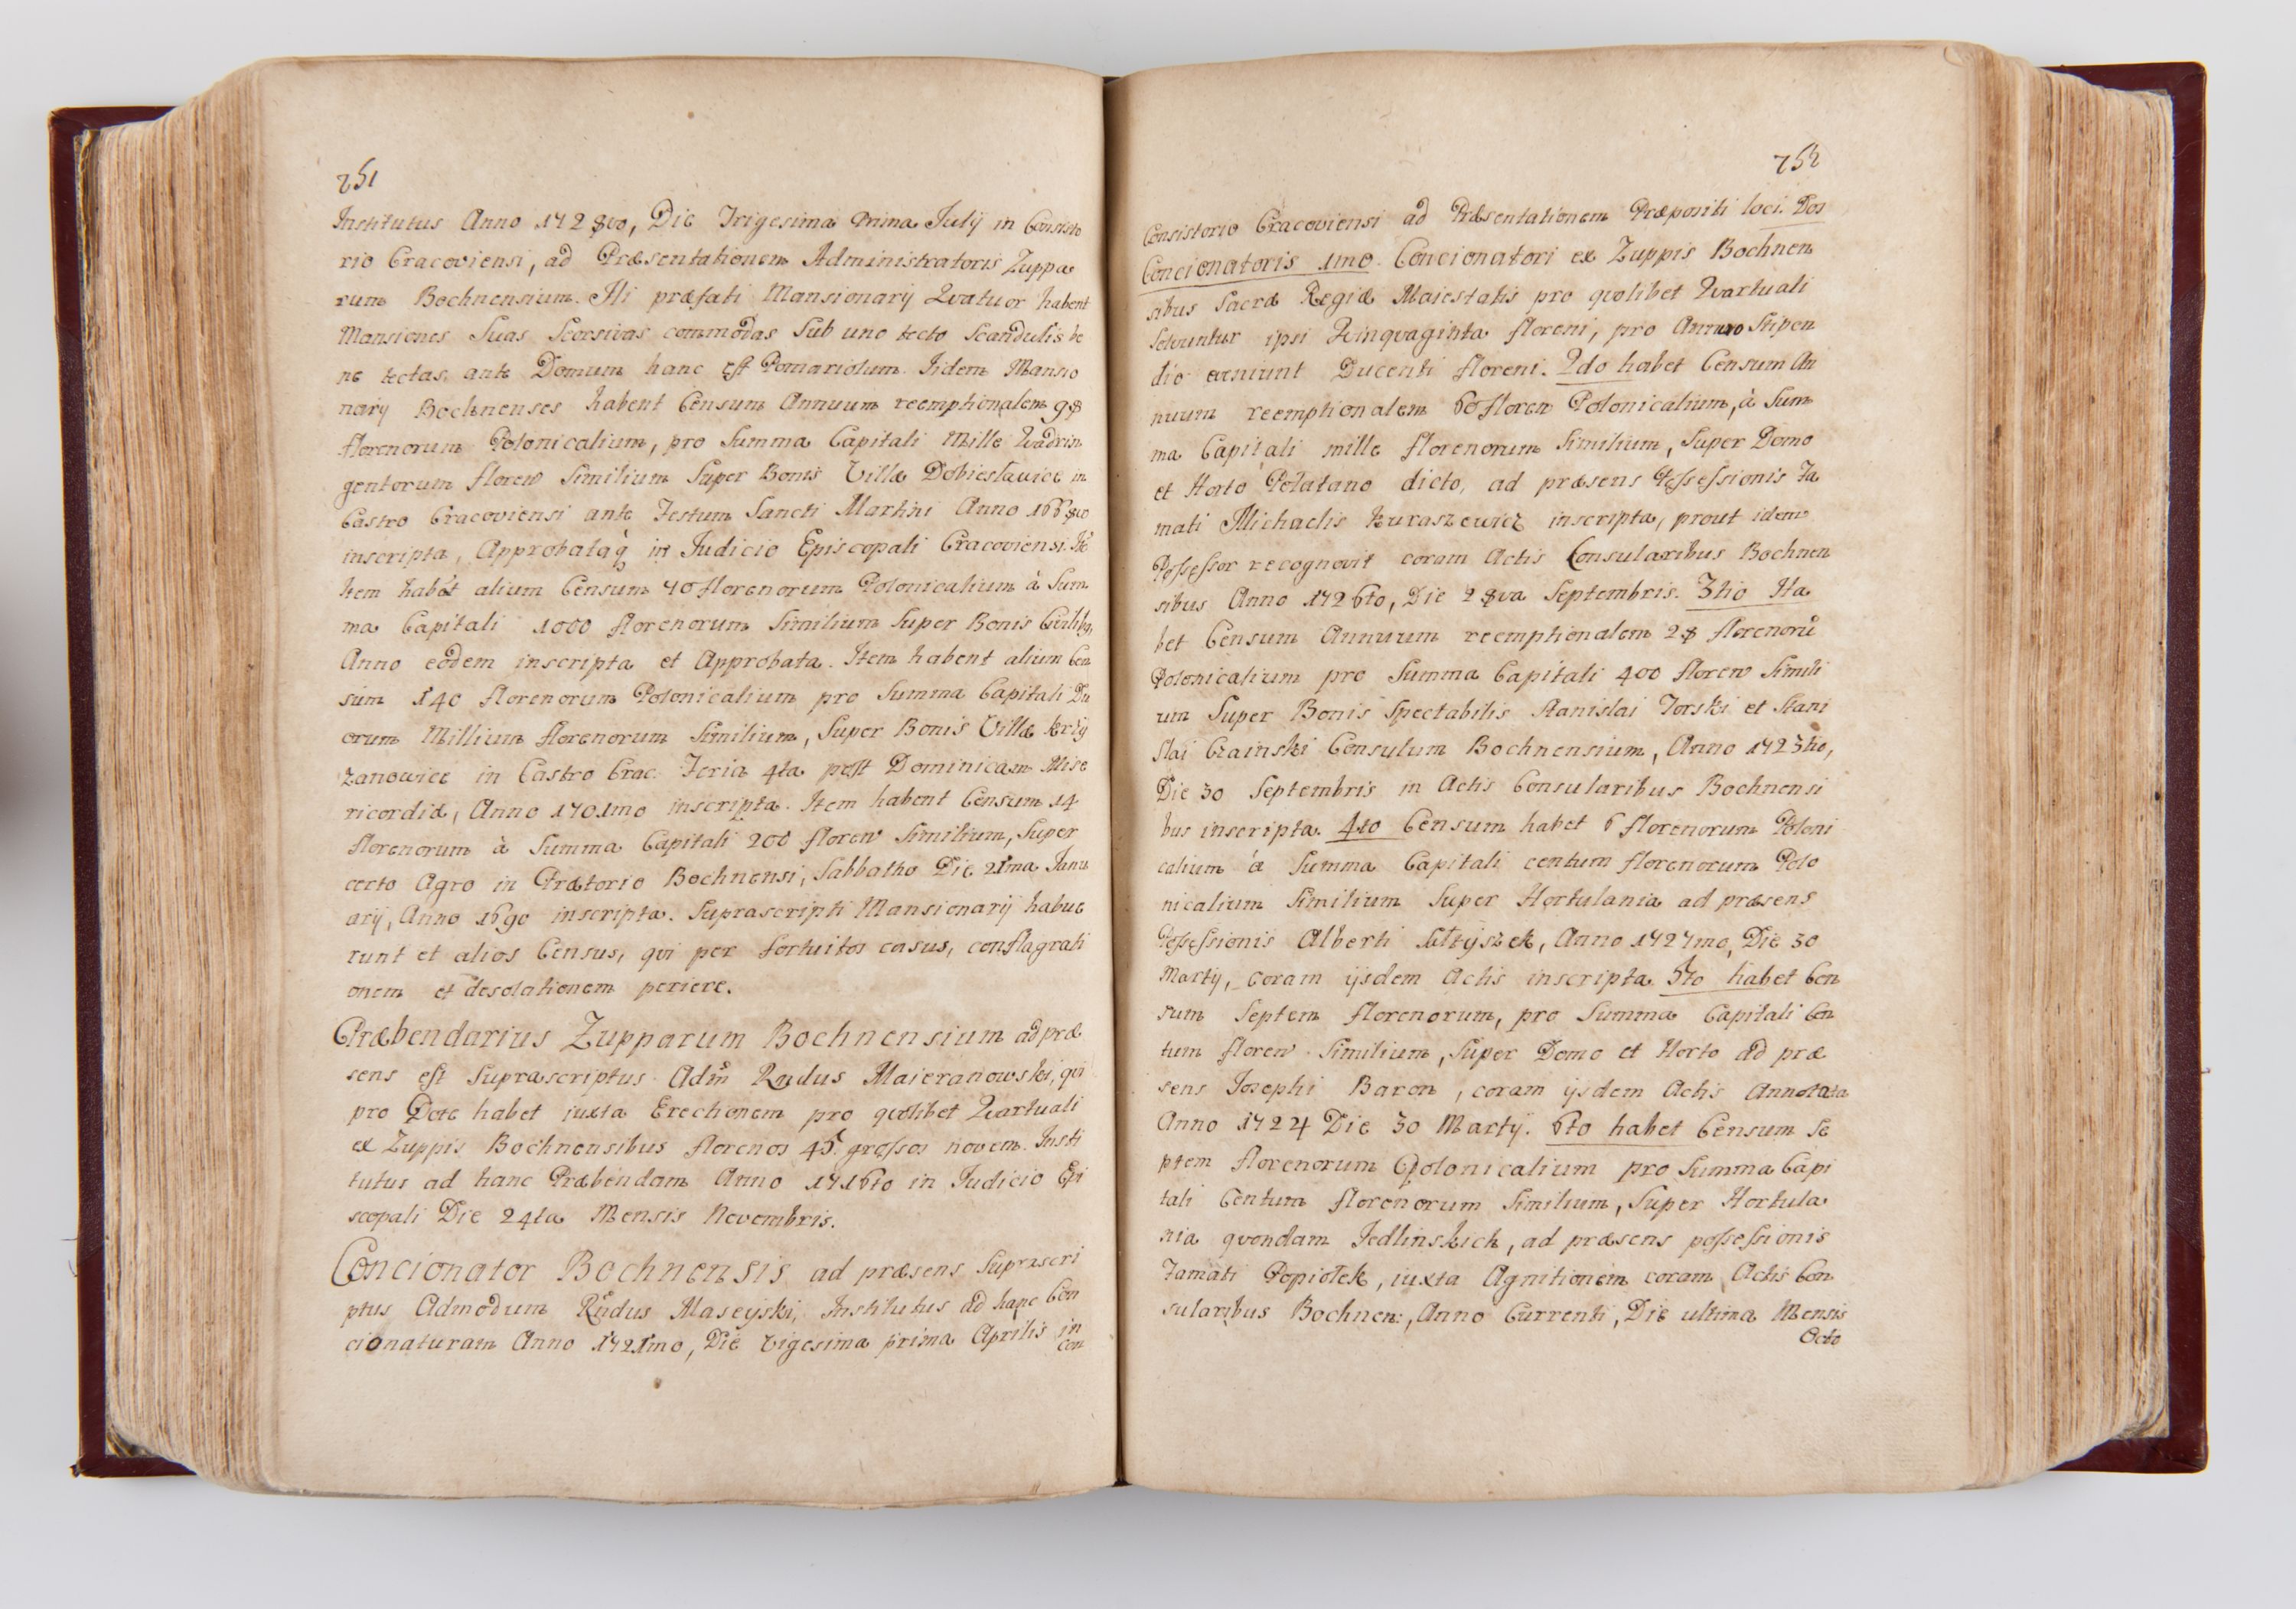 751
Institutus Anno 1728vo, Die Trigesima prima Julij in Consisto
rio Cracoviensi, ad Præsentationem Administratoris Zuppa
rum Bochnensium. Hi præfati Mansionarij Qvatuor habent
Mansiones Suas Seorsivas commodas Sub uno tecto Scandulis be
ne tectas, ante Domum hanc est Pomariolum. Iidem Mansio
narij Bochnenses habent Censum Annuum reemptionalem 98
florenorum Polonicalium, pro Summa Capitali Mille Qvadrin
gentorum floren Similium Super Bonis Villæ Dobieslawice in
Castro Cracoviensi ante Festum Sancti Martini Anno 1668vo
inscripta, Approbataq in Judicio Episcopali Cracoviensi.
Item habet alium Censum 70 florenorum Polonicalium à Sum
ma Capitali 1000 florenorum Similium Super Bonis
Anno eodem inscripta et Approbata. Item habent alium Cen
sum 140 florenorum Polonicalium pro Summa Capitali Du
orum Millium florenorum Similium, Super Bonis Villæ Krzy
zanowice in Castro Crac. Feria 4ta post Dominicam Mise
ricordiæ, Anno 1701mo inscripta. Item habent Censum 14
florenorum à Summa Capitali 200 floren Similium, Super
certo Agro in Prætorio Bochnensi, Sabbatho Die 21ma Janu
arij, Anno 1690 inscripta. Suprascripti Mansionarij habue
runt et alios Census, qvi per fortuitos casus, conflagrati
onem et desolationem periere.
Præbendarius Zupparum Bochnensium ad præ
sens est Suprascriptus Adm Rndus Maieranowski, qvi
pro Dote habet iuxta Erectionem pro qvolibet Qvartuali
ex Zuppis Bochnensibus florenos 45. grossos novem. Insti
tutus ad hanc Præbendam Anno 1716to in Judicio Epi
scopali Die 24ta Mensis Novembris.
Concionator Bochnensis ad præsens Suprascri
ptus Admodum Rndus Maseyski, Institutus ad hanc Con
cionaturam Anno 1721mo, Die Vigesima prima Aprilis in
Con
752
Consistorio Cracoviensi ad Præsentationem Præpositi loci. Dos
Concionatoris 1mo. Concionatori ex Zuppis Bochnen
sibus Sacræ Regiæ Maiestatis pro qvolibet Qvartuali
Solvuntur ipsi Qvinqvaginta floreni, pro Annuo Stipen
dio eveniunt Ducenti floreni. 2do habet Censum An
nuum reemptionalem 60 floren Polonicalium, à Sum
ma Capitali mille florenorum Similium, Super Domo
et Horto Połatano dicto, ad præsens Possessionis Fa
mati Michaelis Kuraszewicz inscripta, prout idem
Possessor recognovit coram Actis Consularibus Bochnen
sibus Anno 1726to, Die 28va Septembris. 3tio Ha
bet Censum Annuum reemptionalem 28 florenorũ
Polonicalium pro Summa Capitali 400 floren Simili
um Super Bonis Spectabilis Stanislai Torski et Stani
slai Czainski Consulum Bochnensium, Anno 1723tio,
Die 30 Septembris in Actis Consularibus Bochnensi
bus inscripta. 4to Censum habet 6 florenorum Poloni
calium à Summa Capitali centum florenorum Polo
nicalium Similium Super Hortulania ad præsens
Possessionis Alberti, Anno 1727mo, Die 30
Martij, coram ijsdem Actis inscripta. 5to habet Cen
sum Septem florenorum, pro Summa Capitali Cen
tum floren Similium, Super Domo et Horto ad præ
sens Josephi Baron, coram ijsdem Actis Annotata
Anno 1724 Die 30 Martij. 6to habet Censum Se
ptem florenorum Polonicalium pro Summa Capi
tali Centum florenorum Similium, Super Hortula
nia qvondam Jedlinskich, ad præsens possessionis
Famati Popiołek, iuxta Agnitionem coram Actis Con
sularibus Bochnen:, Anno Currenti, Die ultima Mensis
Octo